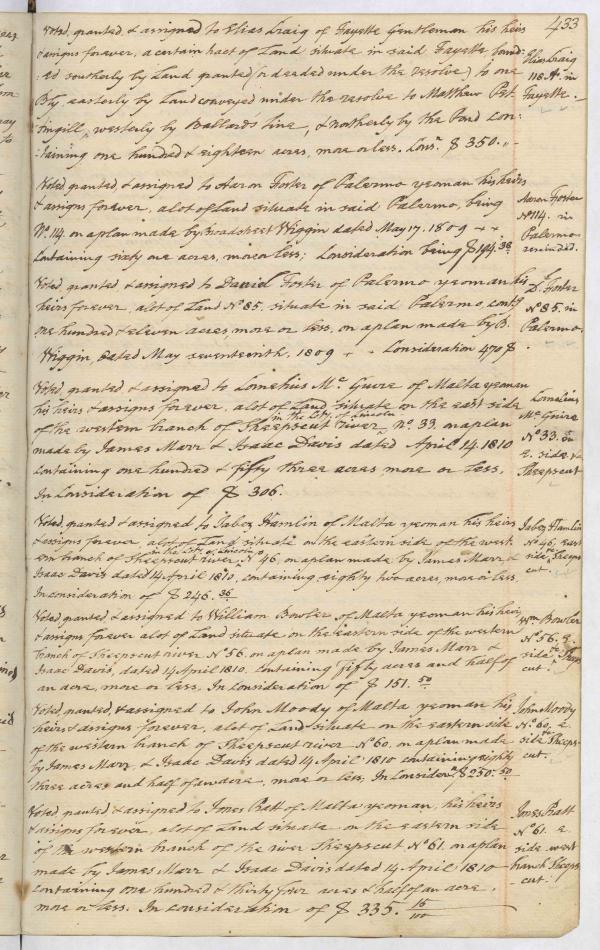 433
Voted, granted, & assigned to Elias Craig of Fayette Gentleman his heirs
& assigns forever, a certain tract of Land situate in said Fayette bound-
:ed southerly by Land granted (or deeded under the resolve) to one
easterly by Land conveyed under the resolve to Matthew Pet
tingill, westerly by Ballards line, & northerly by the Pond Con-
:taining one hundred & eighteen acres, more or less. Consn. $ 350. "-
Elias Craig
118 A. in
Fayette.
Voted, granted, & assigned to Aaron Foster of Palermo yeoman his heirs
& assigns forever, a lot of Land situate in said Palermo, being
No. 114. on a plan made by Broadstreet Wiggin dated May 17. 1809 + +
Containing sixty one acres, more or less; Consideration being $ 194.38
Aaron Foster
No 114. in
Palermo
rescinded.
Voted, granted & assigned to Daniel Foster of Palermo yeoman his
heirs forever, a lot of Land No 85. situate in said Palermo, contg
one hundred & eleven acres, more or less. on a plan made by B.
Wiggin, dated May seventeenth, 1809 + + Consideration 470 $
D. Foster
No 85. in
Palermo.
Voted, granted & assigned to Cornelius Mc Guire of Malta yeoman
his heirs & assigns forever, a lot of Land situate on the east side
in the Cty. of Lincoln
of the western branch of Sheepscut river, No. 33. on a plan
made by James Marr & Isaac Davis dated April 14. 1810
Containing one hundred & fifty three acres more or less,
In Consideration of $ 306.
Cornelius
Mc Guire
No 33.
E. side
Sheepscut
Voted, granted & assigned to Jabez Hamlin of Malta yeoman his heirs
& assigns forever, a lot of Land situate on the eastern side of the west-
in the Cty of Lincoln
ern branch of Sheepscut river. No 46, on a plan made by James Marr &
Isaac Davis dated 14 April 1810, containing eighty two acres, more or less.
In consideration of $ 246.36
Jabez Hamlin
No 46, East
side Sheeps
cut.
Voted, granted & assigned to William Bowler of Malta yeoman his heirs
& assigns forever a lot of Land situate on the eastern side of the western
branch of Sheepscut river No 56. on a plan made by James Marr &
Isaac Davis, dated 14 April 1810. Containing fifty acres and half of
an acre, more or less. In Consideration of $ 151.50
Wm Bowler
No 56. E.
side Sheeps
cut.
Voted, granted, & assigned to John Moody of Malta yeoman his
heirs & assigns forever, a lot of Land situate on the eastern side
of the western branch of Sheepscut river No 60. on a plan made
by James Marr, & Isaac Davis dated 14 April 1810 containing eighty
three acres and half of an acre, more or less, In Considern. $ 250.50
John Moody
No 60. E.
side Sheeps-
cut.
Voted, granted & assigned to Jones Pratt of Malta yeoman, his heirs
& assigns forever, a lot of Land situate on the eastern side
of the western branch of the river Sheepscut No 61. on a plan
made by James Marr & Isaac Davis dated 14 April 1810
containing one hundred & thirty four acres & half of an acre,
more or less. In consideration of $ 335. 16/100
Jones Pratt
No 61. E.
side west
branch Sheeps
cut.